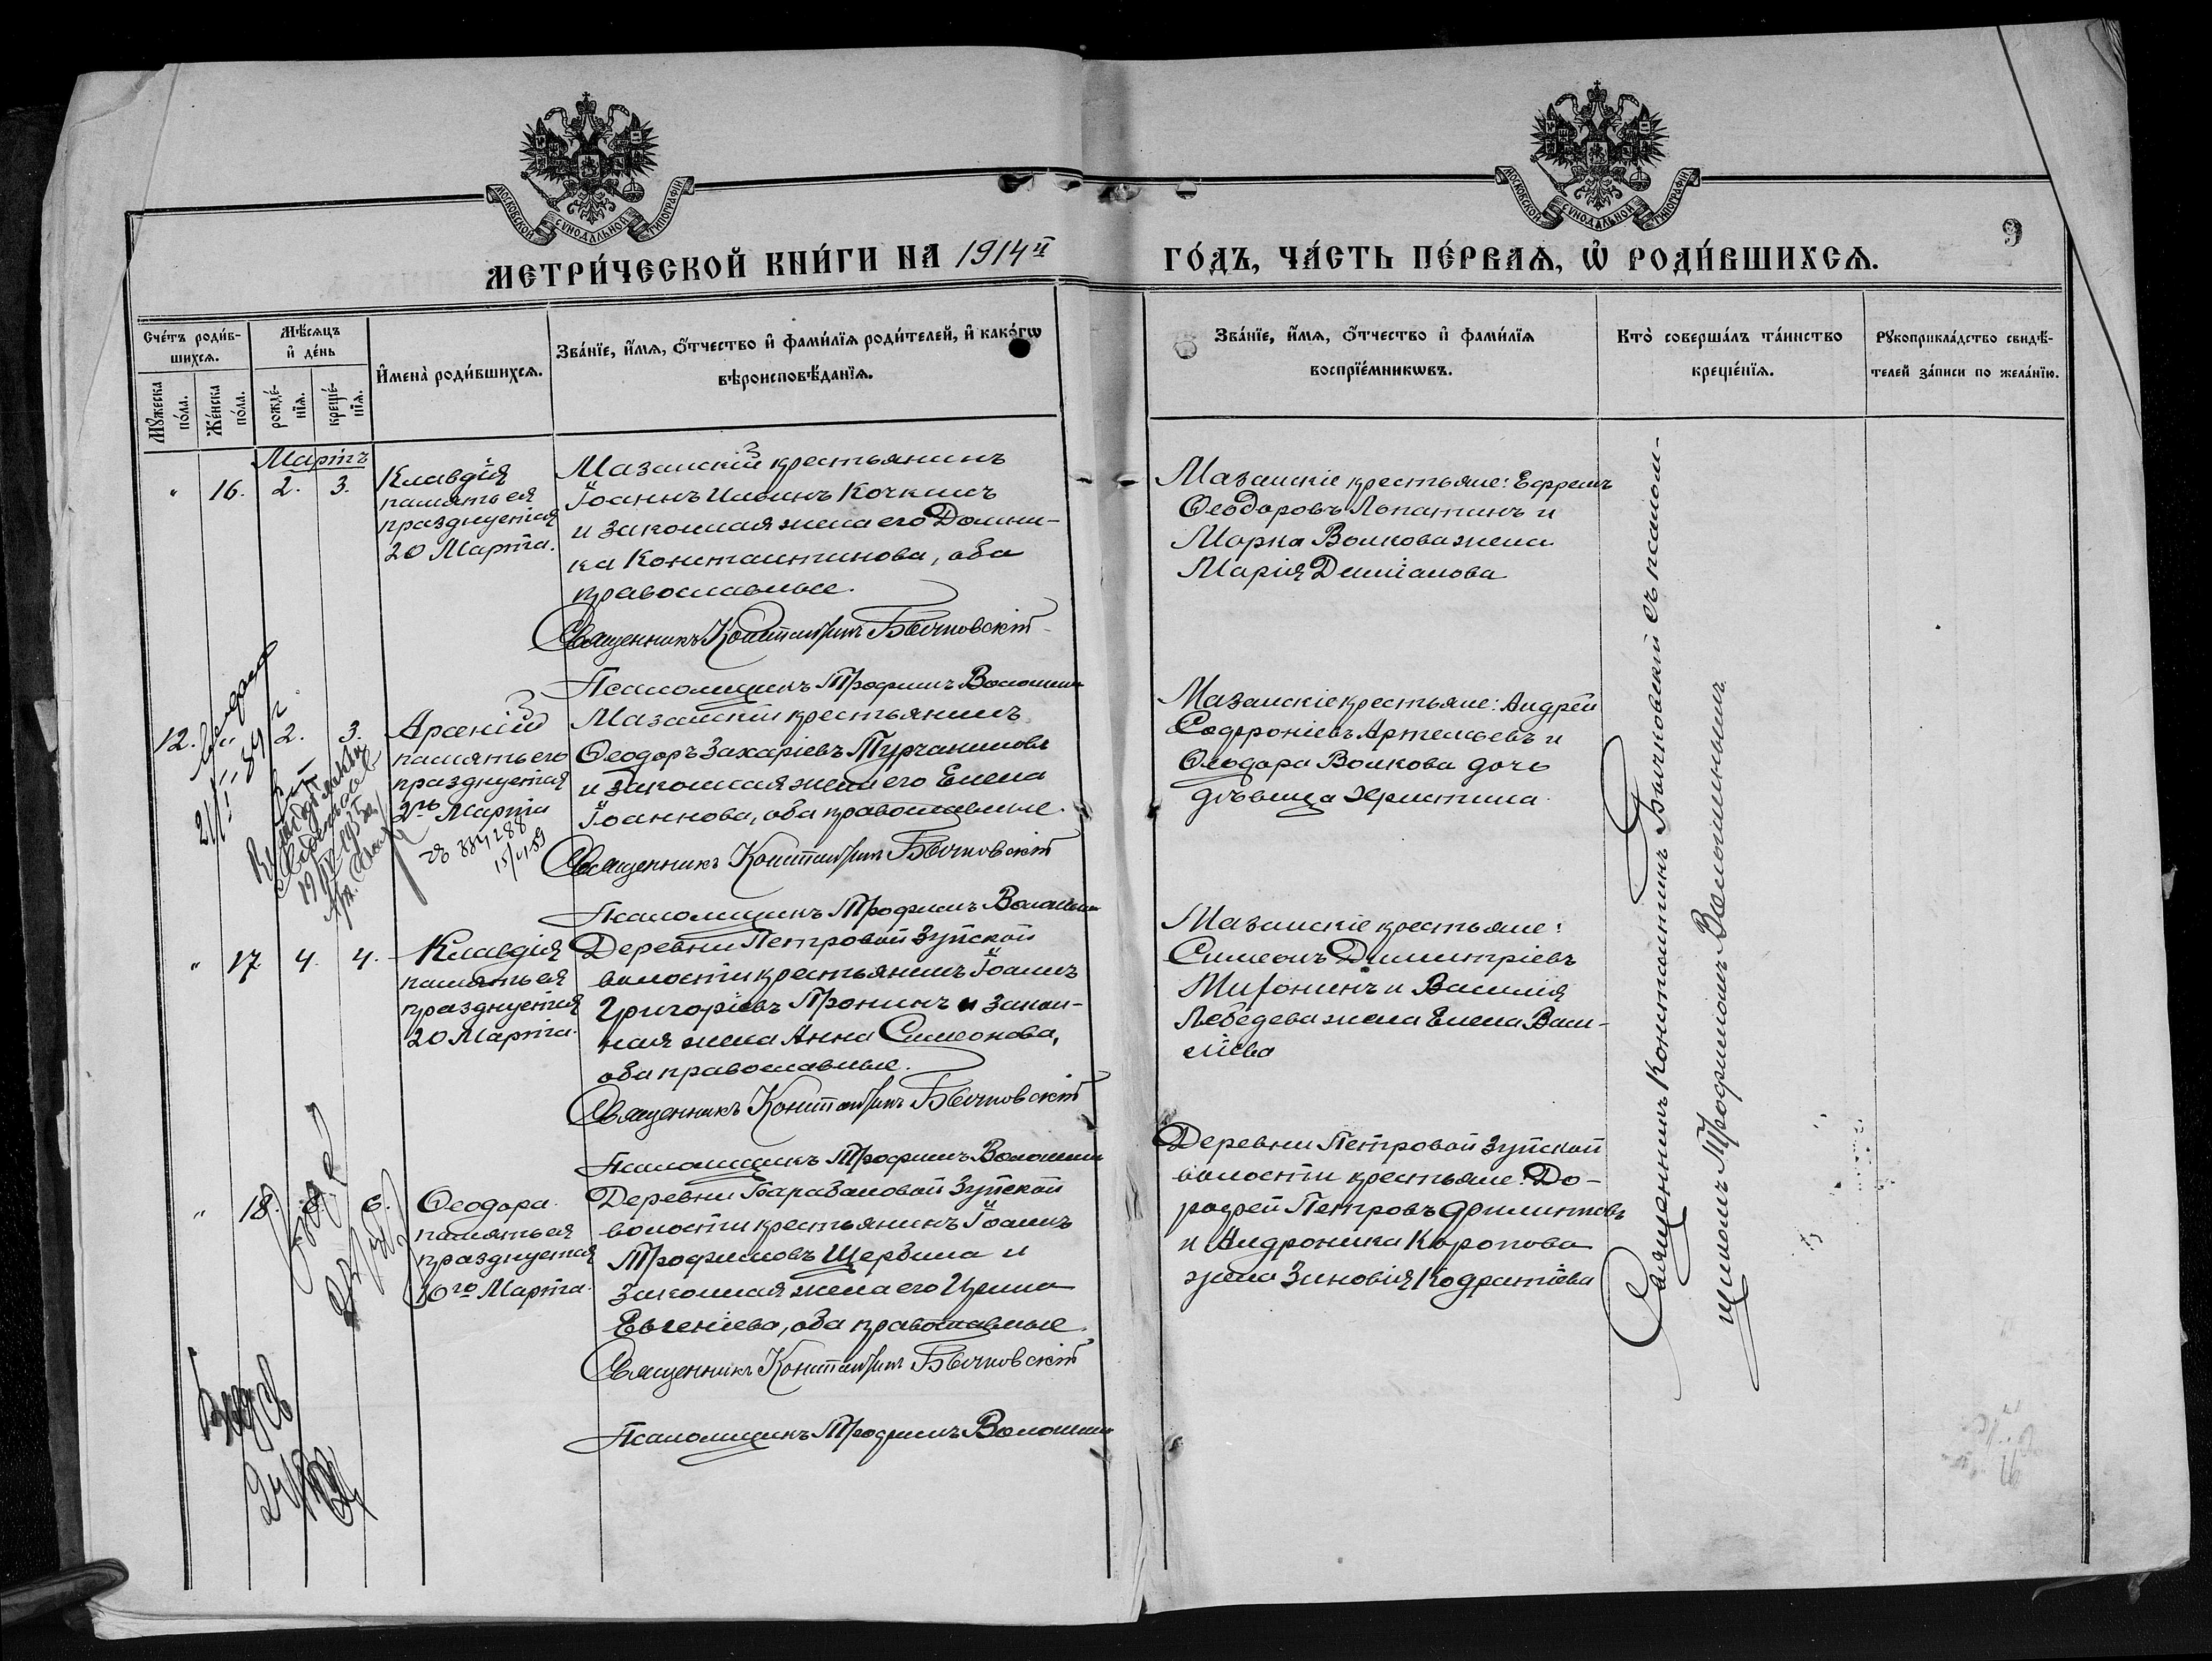 МОСКОВСКОЙ СѴНОДАЛЬНОЙ ТИПОГРАФІИ
МОСКОВСКОЙ СѴНОДАЛЬНОЙ ТИПОГРАФІИ
9
МЕТРИ́ЧЕСКОЙ КНИ́ГИ НА 1914й
ГО́ДЪ, ЧА́СТЬ ПЕ́РВАѦ, Ѡ҆ РОДИ́ВШИХСѦ.
Сче́тъ роди́в-
шихсѧ.
Мꙋ́жеска
по́ла.
Же́нска
по́ла.
Мѣ́сѧцъ
и҆ де́нь
рожде́-
нїѧ.
креще́-
нїѧ.
И҆мена̀ роди́вшихсѧ.
Зва́нїе, и҆́мѧ, ѻ҆́тчество и҆ фами́лїѧ роди́телей, и҆ како́гѡ
вѣроисповѣ́данїѧ.
Зва́нїе, и҆́мѧ, ѻ҆́тчество и҆ фами́лїѧ
воспрїе́мникѡвъ.
Кто̀ соверша́лъ та́инство
креще́нїѧ.
Рꙋкоприкла́дство свидѣ́-
телей за́писи по жела́нїю.
Мартъ
" 16. 2. 3.
Клавдія
память ея
празднуется
20 Марта.
Мазанскій крестьянинъ
Іоаннъ Ильинъ Кочкинъ
и законная жена его Домни-
ка Константинова, оба
православные.
Священникъ Константинъ Бычковскій
Псаломщикъ Трофимъ Волошинъ
Мазанскіе крестьяне: Ефремъ
Ѳеодоровъ Лопатинъ и
Марка Волкова жена
Марія Даміанова
12. " 2. 3.
Арсеній
память его
празднуется
2го Марта
Мазанскій крестьянинъ
Ѳеодоръ Захаріевъ Турчаниновъ
и законная жена его Елена
Іоаннова, оба православные.
Священникъ Константинъ Бычковскій
Псаломщикъ Трофимъ Волошинъ
Мазанскіе крестьяне: Андрей
Софроніевъ Артемьевъ и
Ѳеодора Волкова дочь
дѣвица Христина.
" 17. 4. 4.
Клавдія
память ея
празднуется
20 Марта.
Деревни Петровой Зуйской
волости крестьянинъ Іоаннъ
Григоріевъ Пронинъ и закон-
ная жена Анна Симеонова,
оба православные.
Священникъ Константинъ Бычковскій
Псаломщикъ Трофимъ Волошинъ
Мазанскіе крестьяне:
Симеонъ Димитріевъ
Мифонинъ и Василія
Лебедева жена Елена Васи-
ліева
" 18. 6.
Ѳеодора
память ея
празднуется
10го Марта.
Деревни Барабановой Зуйской
волости крестьянинъ Іоаннъ
Трофимовъ Щербина и
законная жена его Ирина
Евгеніева, оба православные
Священникъ Константинъ Бычковскій
Псаломщикъ Трофимъ Волошинъ
Деревни Петровой Зуйской
волости крестьяне: До-
рофей Петровъ
и Андроника Коропова
жена Зиновія Кодратіева
Священникъ Константинъ Бычковскій съ псалом-
щикомъ Трофимомъ Волошинымъ